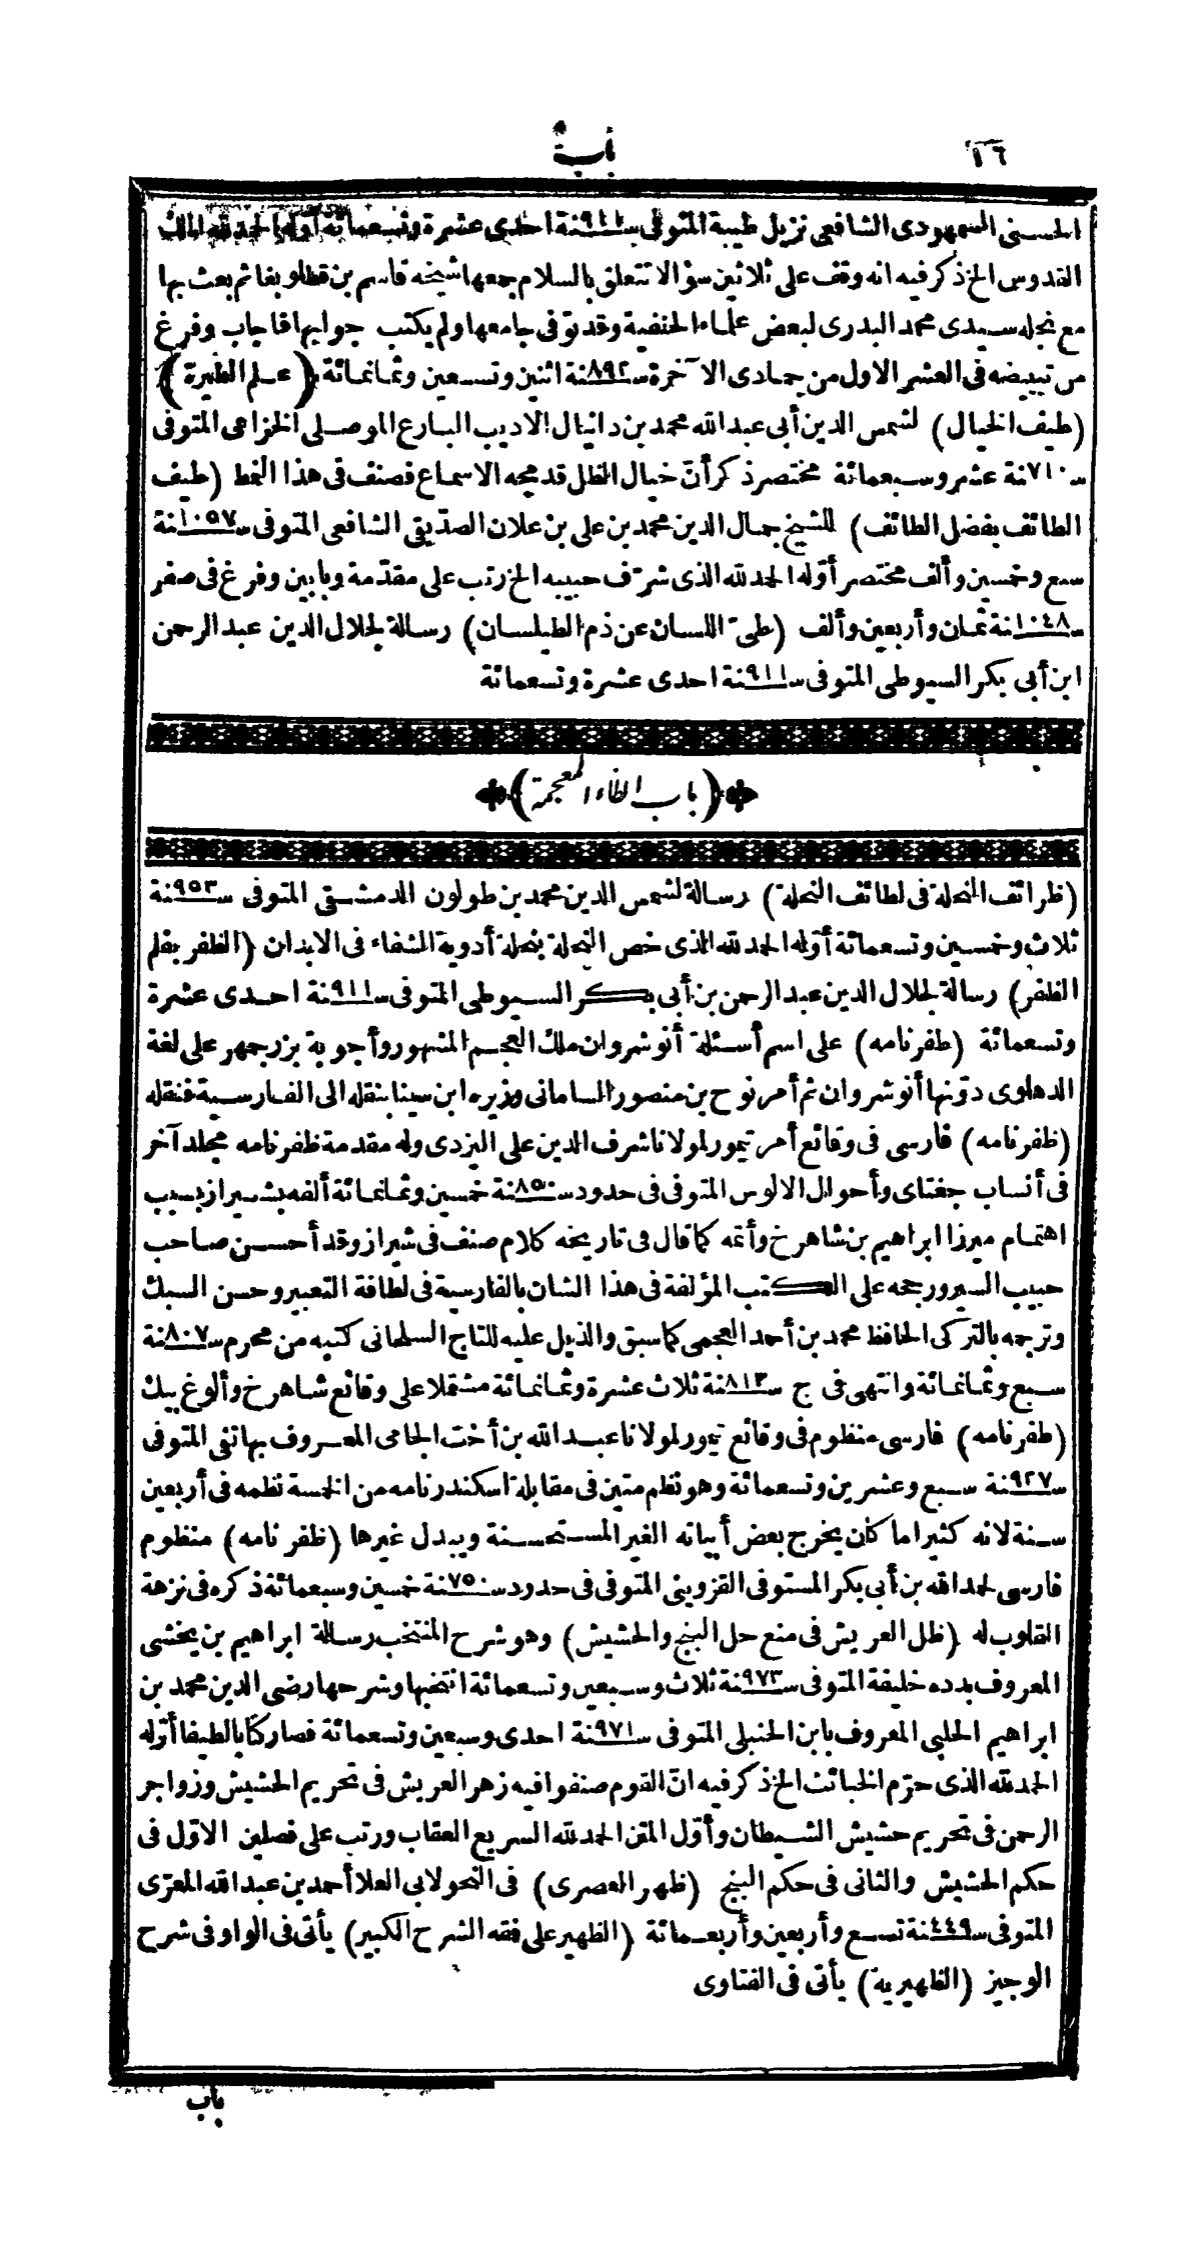 ١٦
الحسنى السمهودى الشافعى نزيل طيبة المتوفى سنة ٩١١ احدى عشرة وتسعمائة أوله الحمد لله الملك
القدوس الخ ذكر فيه انه وقف على ثلاثين سؤالا تتعلق بالسلام جمعها شيخه قاسم بن قطلوبغا ثم بعث بها
مع نجله سيدى محمد البدرى لبعض علماء الحنفية وقد توفى جامعها ولم يكتب جوابها فاجاب وفرغ
من تبييضه فى العشر الاول من جمادى الآخرة سنة ٨٩٢ اثنين وتسعين وثمانمائة (علم الطيرة)
(طيف الخيال) لشمس الدين أبى عبد الله محمد بن دانيال الاديب البارع الموصلى الخزاعى المتوفى
سنة ٧١٠ عشر وسبعمائة مختصر ذكر أن خيال الظل قد مجه الاسماع فصنف فى هذا النمط (طيف
الطائف بفضل الطائف) للشيخ جمال الدين محمد بن على بن علان الصدّيقى الشافعى المتوفى سنة ١٠٥٧
سبع وخمسين وألف مختصر أوّله الحمد لله الذى شرّف حبيبه الخ رتب على مقدّمة وبابين وفرغ فى صفر
سنة ١٠٤٨ ثمان وأربعين وألف (طىّ اللسان عن ذم الطيلسان) رسالة لجلال الدين عبد الرحمن
ابن أبى بكر السيوطى المتوفى سنة ٩١١ احدى عشرة وتسعمائة
(باب الظاء المعجمة)
(ظرائف النحلة فى لطائف النحلة) رسالة لشمس الدين محمد بن طولون الدمشقى المتوفى سنة ٩٥٣
ثلاث وخمسين وتسعمائة أوّله الحمد لله الذى خص النحلة بنحلة أدوية الشفاء فى الابدان (الظفر بقلم
الظفر) رسالة لجلال الدين عبد الرحمن بن أبى بكر السيوطى المتوفى سنة ٩١١ احدى عشرة
وتسعمائة (ظفرنامه) على اسم أسئلة أنوشروان ملك العجم المشهور وأجوبة بزرجمهر على لغة
الدهلوى دوّنها أنوشروان ثم أمر نوح بن منصور السامانى وزيره ابن سينا بنقله الى الفارسية فنقله
(ظفرنامه) فارسى فى وقائع أمر تيمور لمولانا شرف الدين على اليزدى وله مقدمة ظفرنامه مجلد آخر
فى أنساب جغتاى وأحوال الالوس المتوفى فى حدود سنة ٨٥٠ خمسين وثمانمائة ألفه بشيراز بسبب
اهتمام ميرزا ابراهيم بن شاهرخ وأتمه كما قال فى تاريخه كلام صنف فى شيراز وقد أحسن صاحب
حبيب السير ورجحه على الكتب المؤلفة فى هذا الشان بالفارسية فى لطافة التعبير وحسن السبك
وترجمه بالتركى الحافظ محمد بن أحمد العجمى كما سبق والذيل عليه للتاج السلمانى كتبه من محرم سنة ٨٠٧
سبع وثمانمائة وانتهى فى ج سنة ٨١٣ ثلاث عشرة وثمانمائة مشتملا على وقائع شاهرخ وألوغ بيك
(ظفرنامه) فارسى منظوم فى وقائع تيمور لمولانا عبد الله بن أخت الجامى المعروف بهاتفى المتوفى
سنة ٩٢٧ سبع وعشرين وتسعمائة وهو نظم متين فى مقابلة اسكندرنامه من الخمسة نظمه فى أربعين
سنة لانه كثيرا ما كان يخرج بعض أبياته الغير المستحسنة ويبدل غيرها (ظفرنامه) منظوم
فارسى لحمد الله بن أبى بكر المستوفى القزوينى المتوفى فى حدود سنة ٧٥٠ خمسين وسبعمائة ذكره فى نزهة
القلوب له (ظل العريش فى منع حل البنج والحشيش) وهو شرح المنتخب رسالة ابراهيم بن يخشى
المعروف بدده خليفة المتوفى سنة ٩٧٣ ثلاث وسبعين وتسعمائة انتخبها وشرحها رضى الدين محمد بن
ابراهيم الحلبى المعروف بابن الحنبلى المتوفى سنة ٩٧١ احدى وسبعين وتسعمائة فصار كتابا لطيفا أوّله
الحمد لله الذى حرّم الخبائث الخ ذكر فيه انّ القوم صنفوا فيه زهر العريش فى تحريم الحشيش وزواجر
الرحمن فى تحريم حشيش الشيطان وأوّل المتن الحمد لله السريع العقاب ورتب على فصلين الاوّل فى
حكم الحشيش والثانى فى حكم البنج (ظهر العصرى) فى النحو لابى العلا أحمد بن عبد الله المعرّى
المتوفى سنة ٤٤٩ تسع وأربعين وأربعمائة (الظهير على فقه الشرح الكبير) يأتى فى الواو فى شرح
الوجيز (الظهيرية) يأتى فى الفتاوى
باب